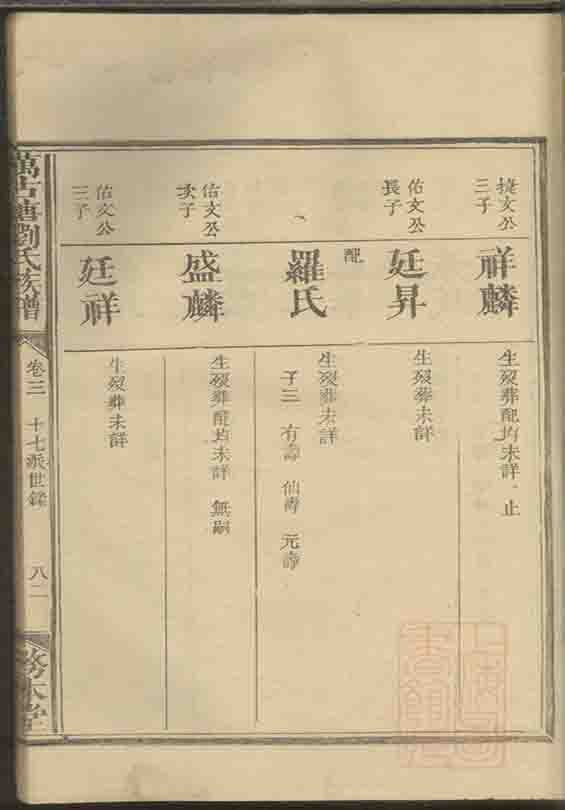 捷文公
三子
祥麟
生殁葬配均未詳 止
佑文公
長子
廷昇
生殁葬未詳
配
羅氏
生殁葬未詳
子三 有壽 仙壽 元壽
佑文公
次子
盛麟
生殁葬配均未詳 無嗣
佑文公
三子
廷祥
生殁葬未詳
萬古塘劉氏族譜
卷三 十七派世錄
八二
務本堂
上海圖書館藏